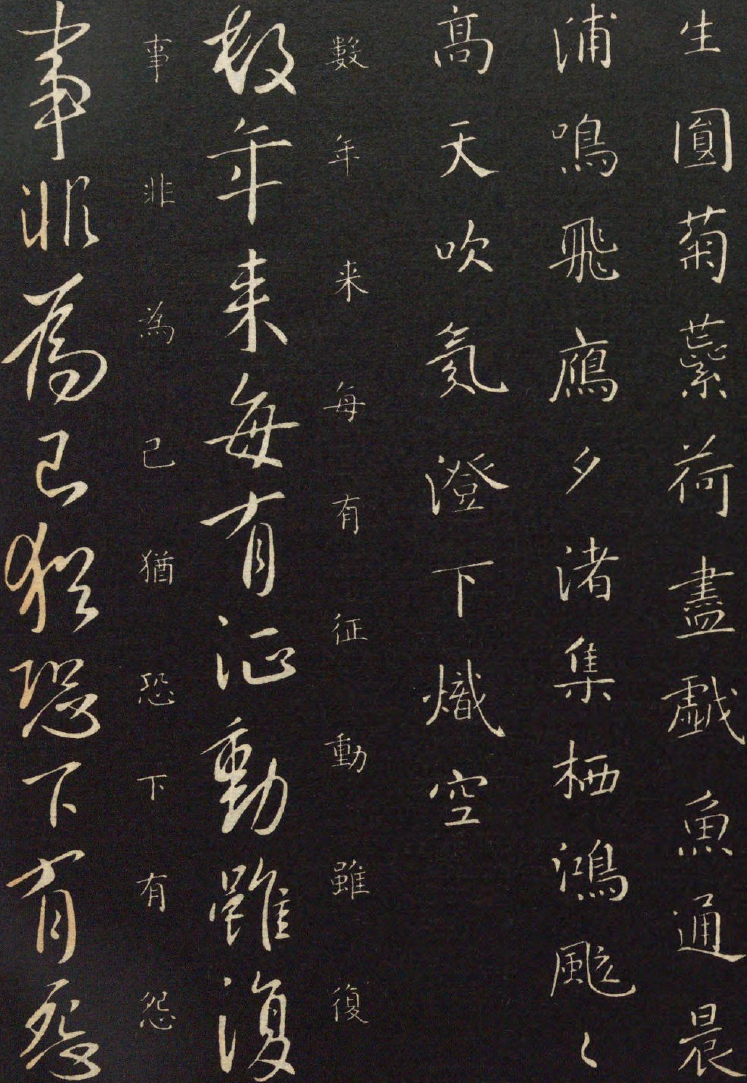 生圓菊蘂荷盡戲魚通晨
浦鳴飛鴈夕渚集栖鴻颸〻
高天吹氛澄下熾空
數年来每有征動雖復
數年来每有征動雖復
事非為己猶恐下有怨
事非為己猶恐下有怨